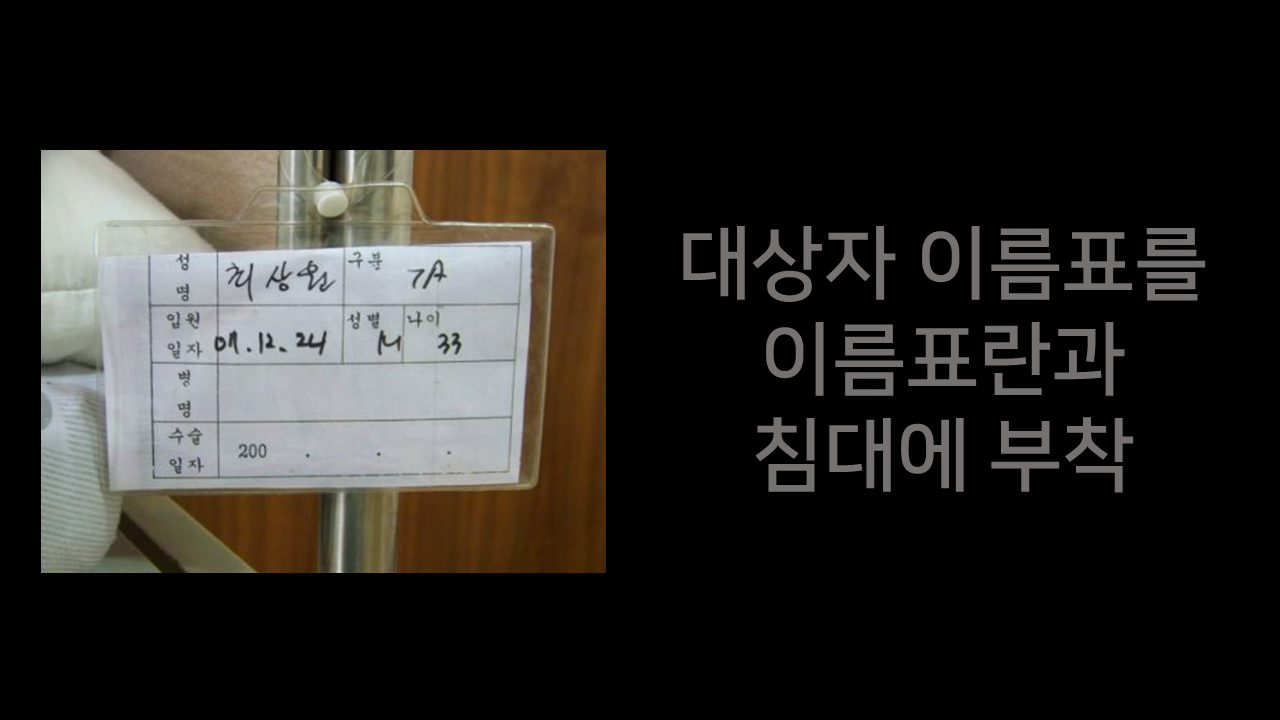 성명 최상원 구분 7A
입원일자 07.12.24 성별 M 나이 33
병명
수술일자 200 . . .
대상자 이름표를
이름표란과
침대에 부착